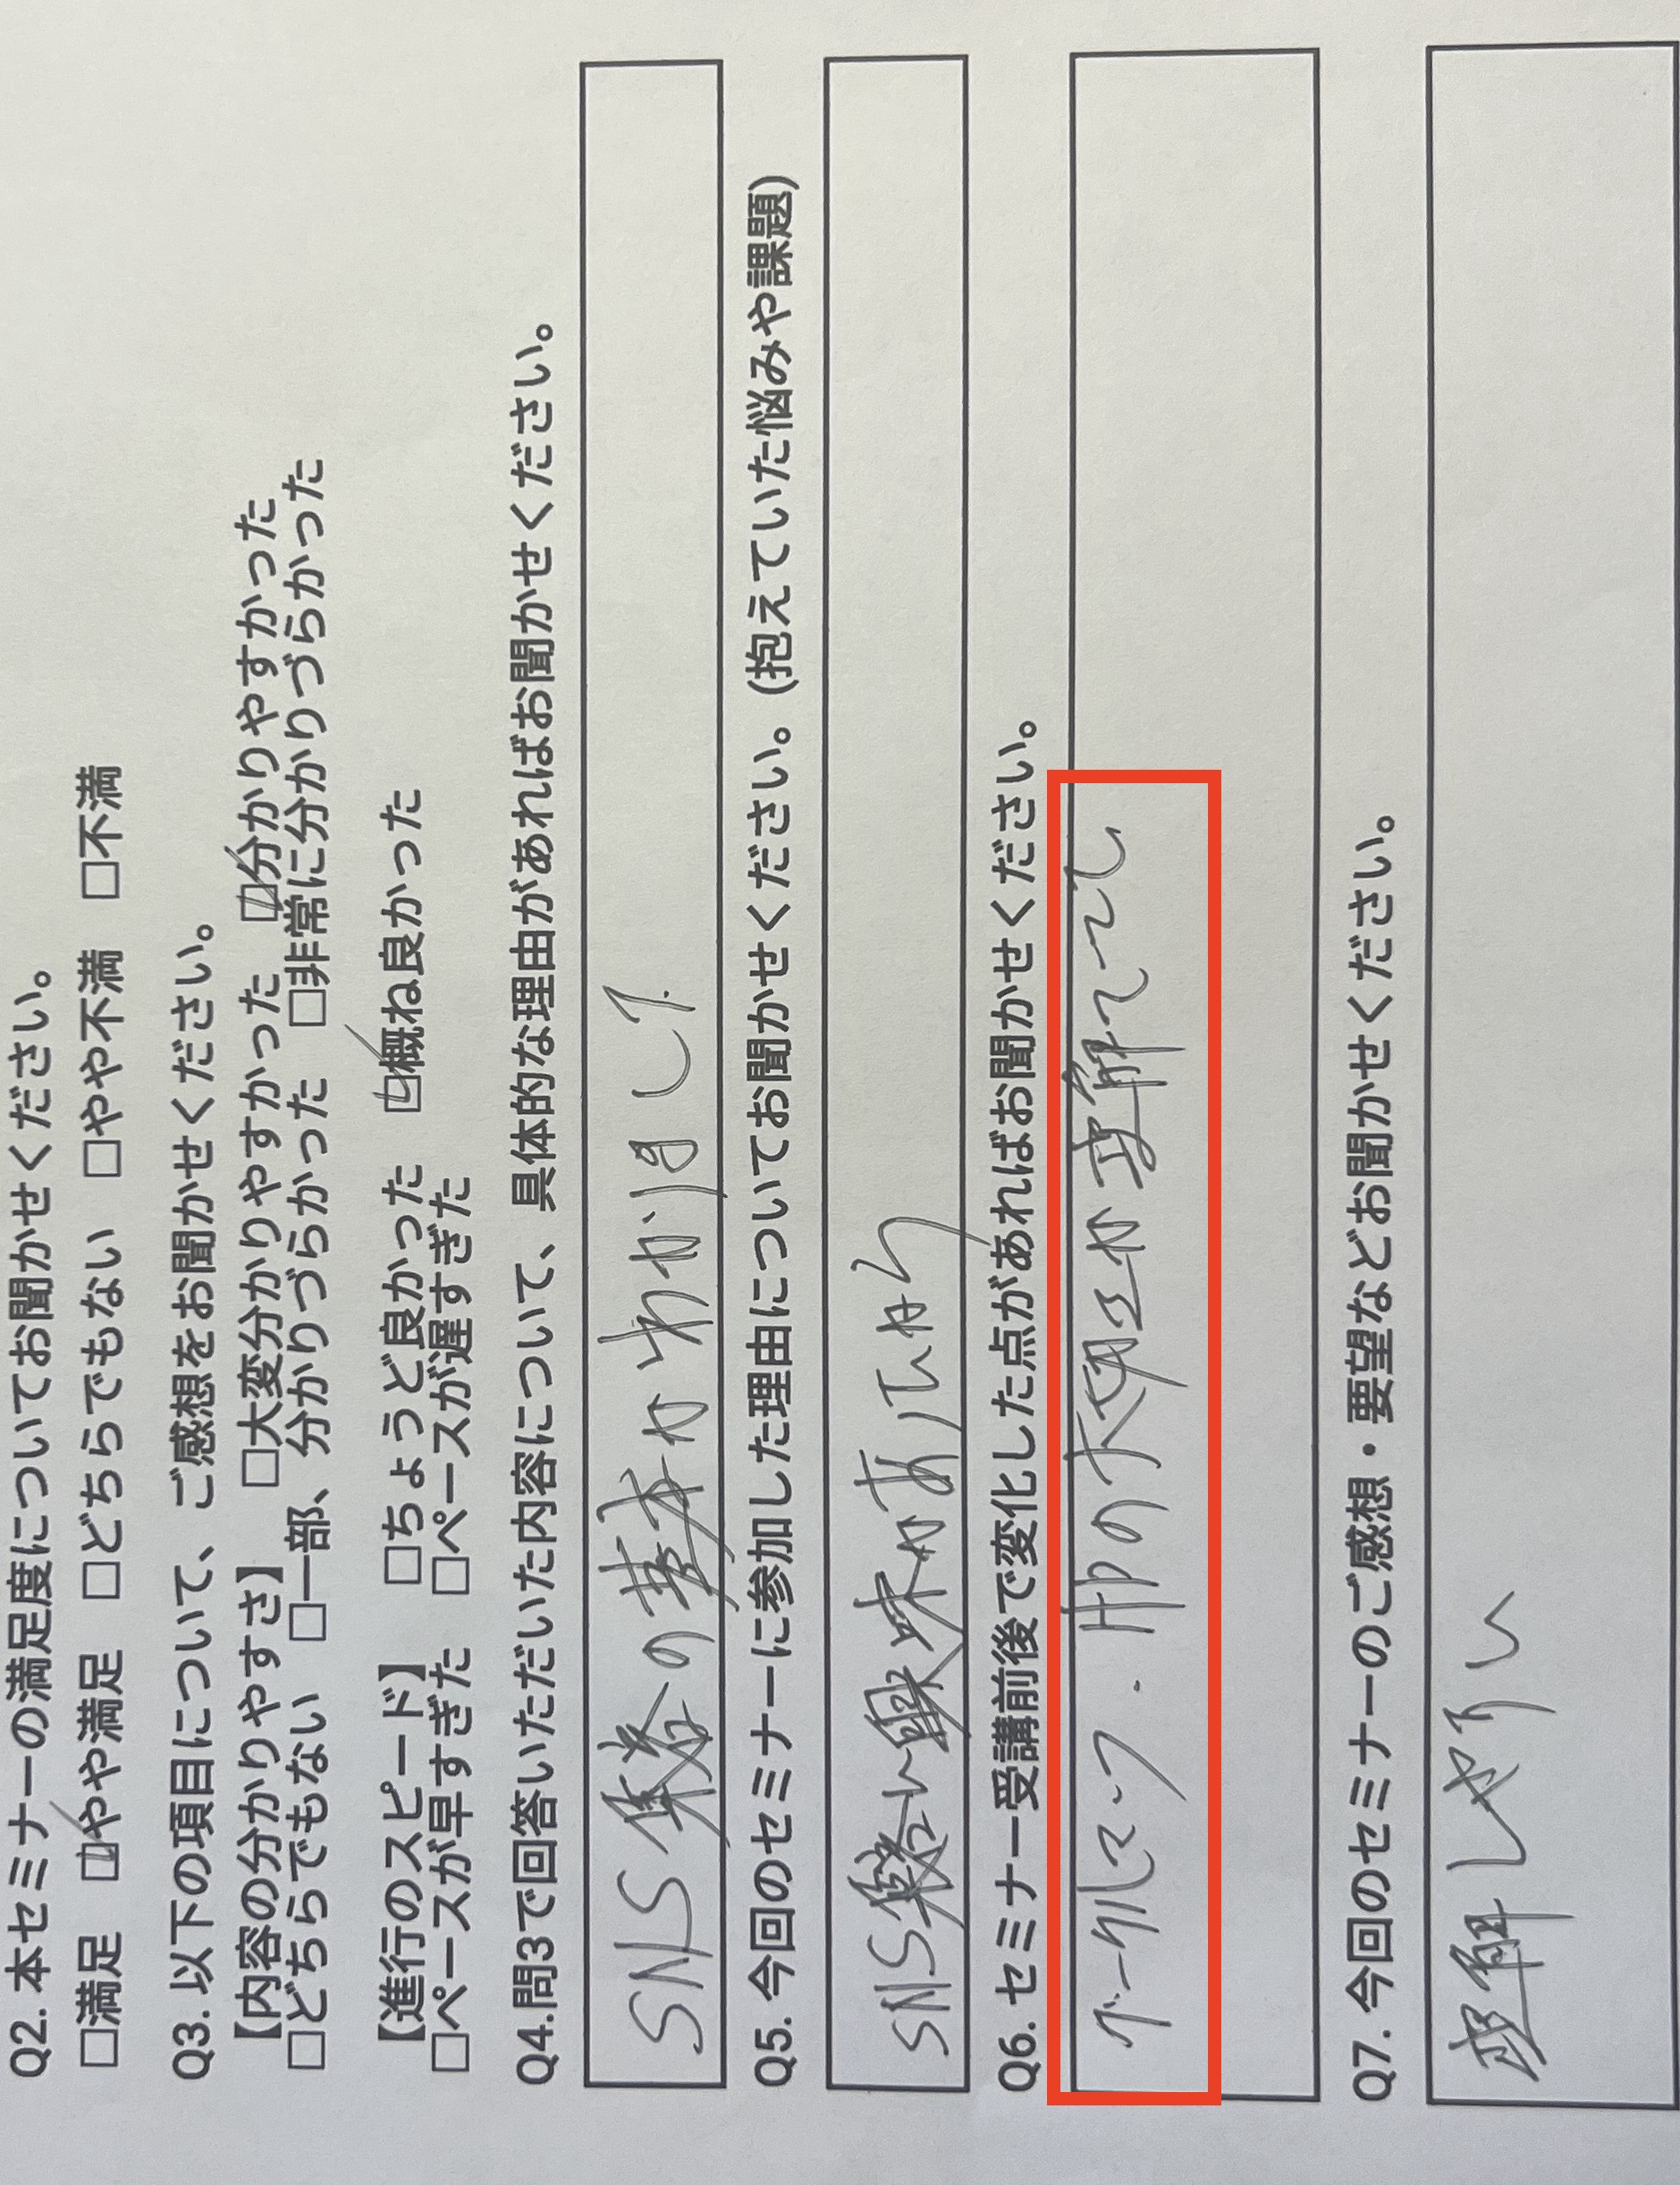 Q2. 本セミナーの満足度についてお聞かせください。
□満足 ☑やや満足 □どちらでもない □やや不満 □不満
Q3. 以下の項目について、ご感想をお聞かせください。
【内容の分かりやすさ】 □大変分かりやすかった ☑分かりやすかった
□どちらでもない □一部、分かりづらかった □非常に分かりづらかった
【進行のスピード】 □ちょうど良かった ☑概ね良かった
□ペースが早すぎた □ペースが遅すぎた
Q4.問3で回答いただいた内容について、具体的な理由があればお聞かせください。
SNS集客の基本がわかりました
Q5. 今回のセミナーに参加した理由についてお聞かせください。(抱えていた悩みや課題)
SNS集客に興味があったから
Q6. セミナー受講前後で変化した点があればお聞かせください。
グーグルマップ・HPの大切さが理解できた
Q7. 今回のセミナーのご感想・要望などお聞かせください。
理解しやすい